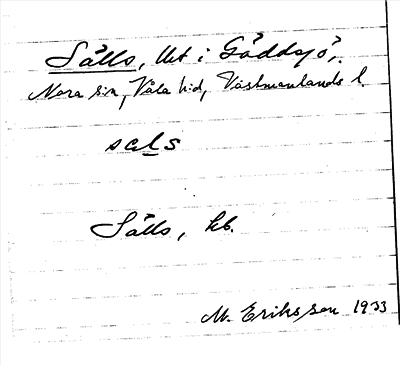 Sälls, llht i Gäddsjö,
Nora sn, Våla hd, Västmanlands l.
sɛls
Sälls, kb.
M. Eriksson 1933